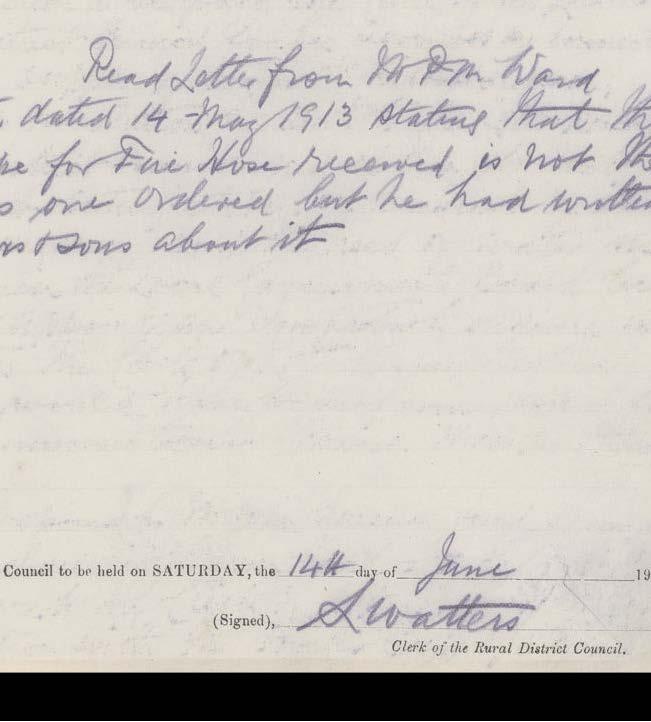 Read Letter from Mr P M Ward
dated 14 May 1913 stating that th
pe for Fire Hose received is not the
s one ordered but he had written
ns & Sons about it
Council to be held on SATURDAY, the 14th day of June 19
(Signed), S Watters
Clerk of the Rural District Council.